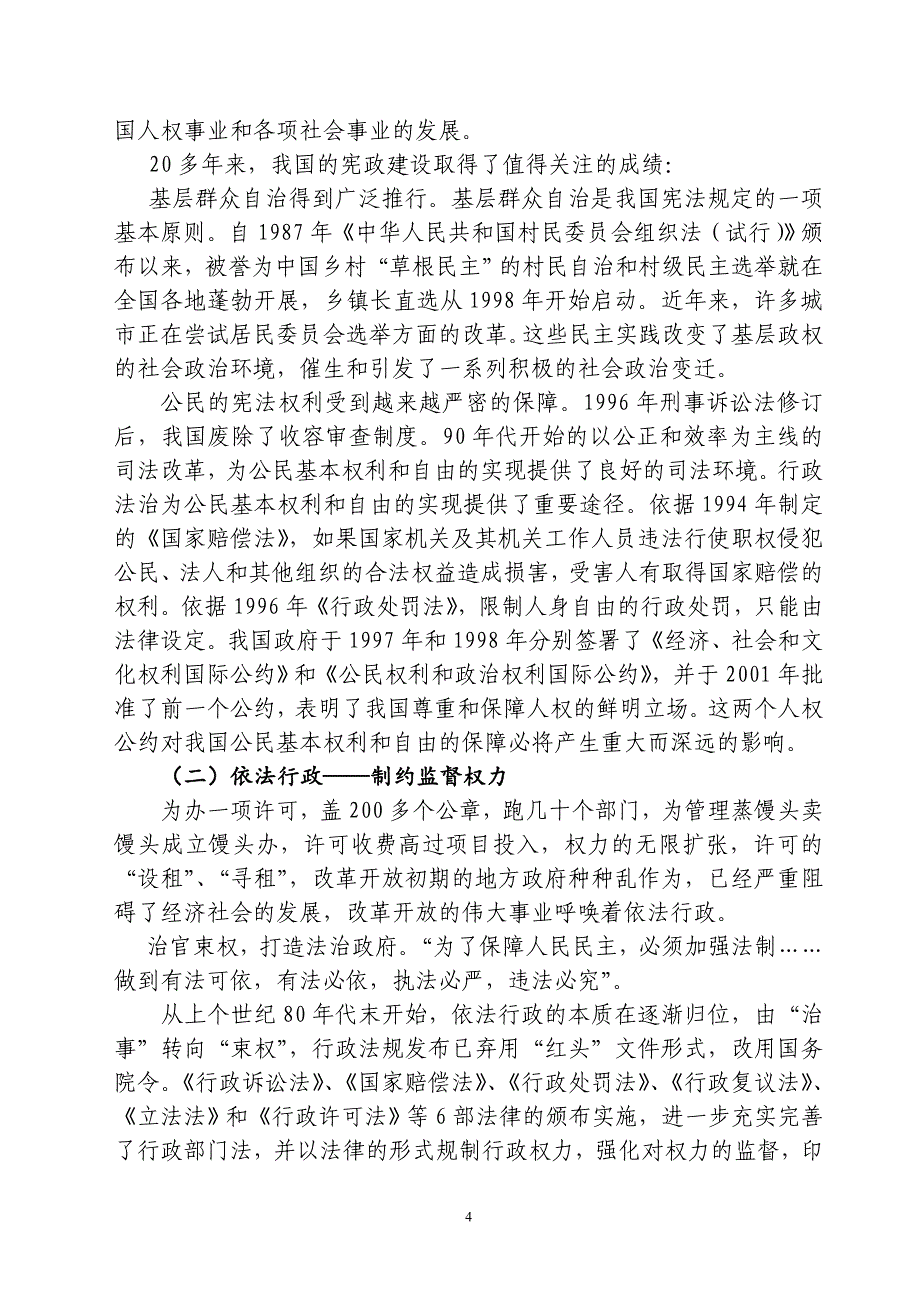 国人权事业和各项社会事业的发展。
20 多年来，我国的宪政建设取得了值得关注的成绩：
基层群众自治得到广泛推行。基层群众自治是我国宪法规定的一项
基本原则。自 1987 年《中华人民共和国村民委员会组织法（试行）》颁
布以来，被誉为中国乡村“草根民主”的村民自治和村级民主选举就在
全国各地蓬勃开展，乡镇长直选从 1998 年开始启动。近年来，许多城
市正在尝试居民委员会选举方面的改革。这些民主实践改变了基层政权
的社会政治环境，催生和引发了一系列积极的社会政治变迁。
公民的宪法权利受到越来越严密的保障。1996 年刑事诉讼法修订
后，我国废除了收容审查制度。90 年代开始的以公正和效率为主线的
司法改革，为公民基本权利和自由的实现提供了良好的司法环境。行政
法治为公民基本权利和自由的实现提供了重要途径。依据 1994 年制定
的《国家赔偿法》，如果国家机关及其机关工作人员违法行使职权侵犯
公民、法人和其他组织的合法权益造成损害，受害人有取得国家赔偿的
权利。依据 1996 年《行政处罚法》，限制人身自由的行政处罚，只能由
法律设定。我国政府于 1997 年和 1998 年分别签署了《经济、社会和文
化权利国际公约》和《公民权利和政治权利国际公约》，并于 2001 年批
准了前一个公约，表明了我国尊重和保障人权的鲜明立场。这两个人权
公约对我国公民基本权利和自由的保障必将产生重大而深远的影响。
（二）依法行政——制约监督权力
为办一项许可，盖 200 多个公章，跑几十个部门，为管理蒸馒头卖
馒头成立馒头办，许可收费高过项目投入，权力的无限扩张，许可的
“设租”、“寻租”，改革开放初期的地方政府种种乱作为，已经严重阻
碍了经济社会的发展，改革开放的伟大事业呼唤着依法行政。
治官束权，打造法治政府。“为了保障人民民主，必须加强法制……
做到有法可依，有法必依，执法必严，违法必究”。
从上个世纪 80 年代末开始，依法行政的本质在逐渐归位，由“治
事”转向“束权”，行政法规发布已弃用“红头”文件形式，改用国务
院令。《行政诉讼法》、《国家赔偿法》、《行政处罚法》、《行政复议法》、
《立法法》和《行政许可法》等 6 部法律的颁布实施，进一步充实完善
了行政部门法，并以法律的形式规制行政权力，强化对权力的监督，印
4